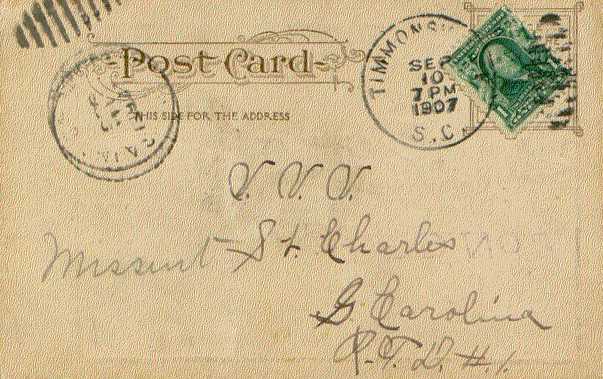 Post Card
THIS SIDE FOR THE ADDRESS
TIMMONS
SEP
10
7 PM
1907
S.C.
V. V. V.
Missent St. Charles
S Carolina
R.F.D. #1